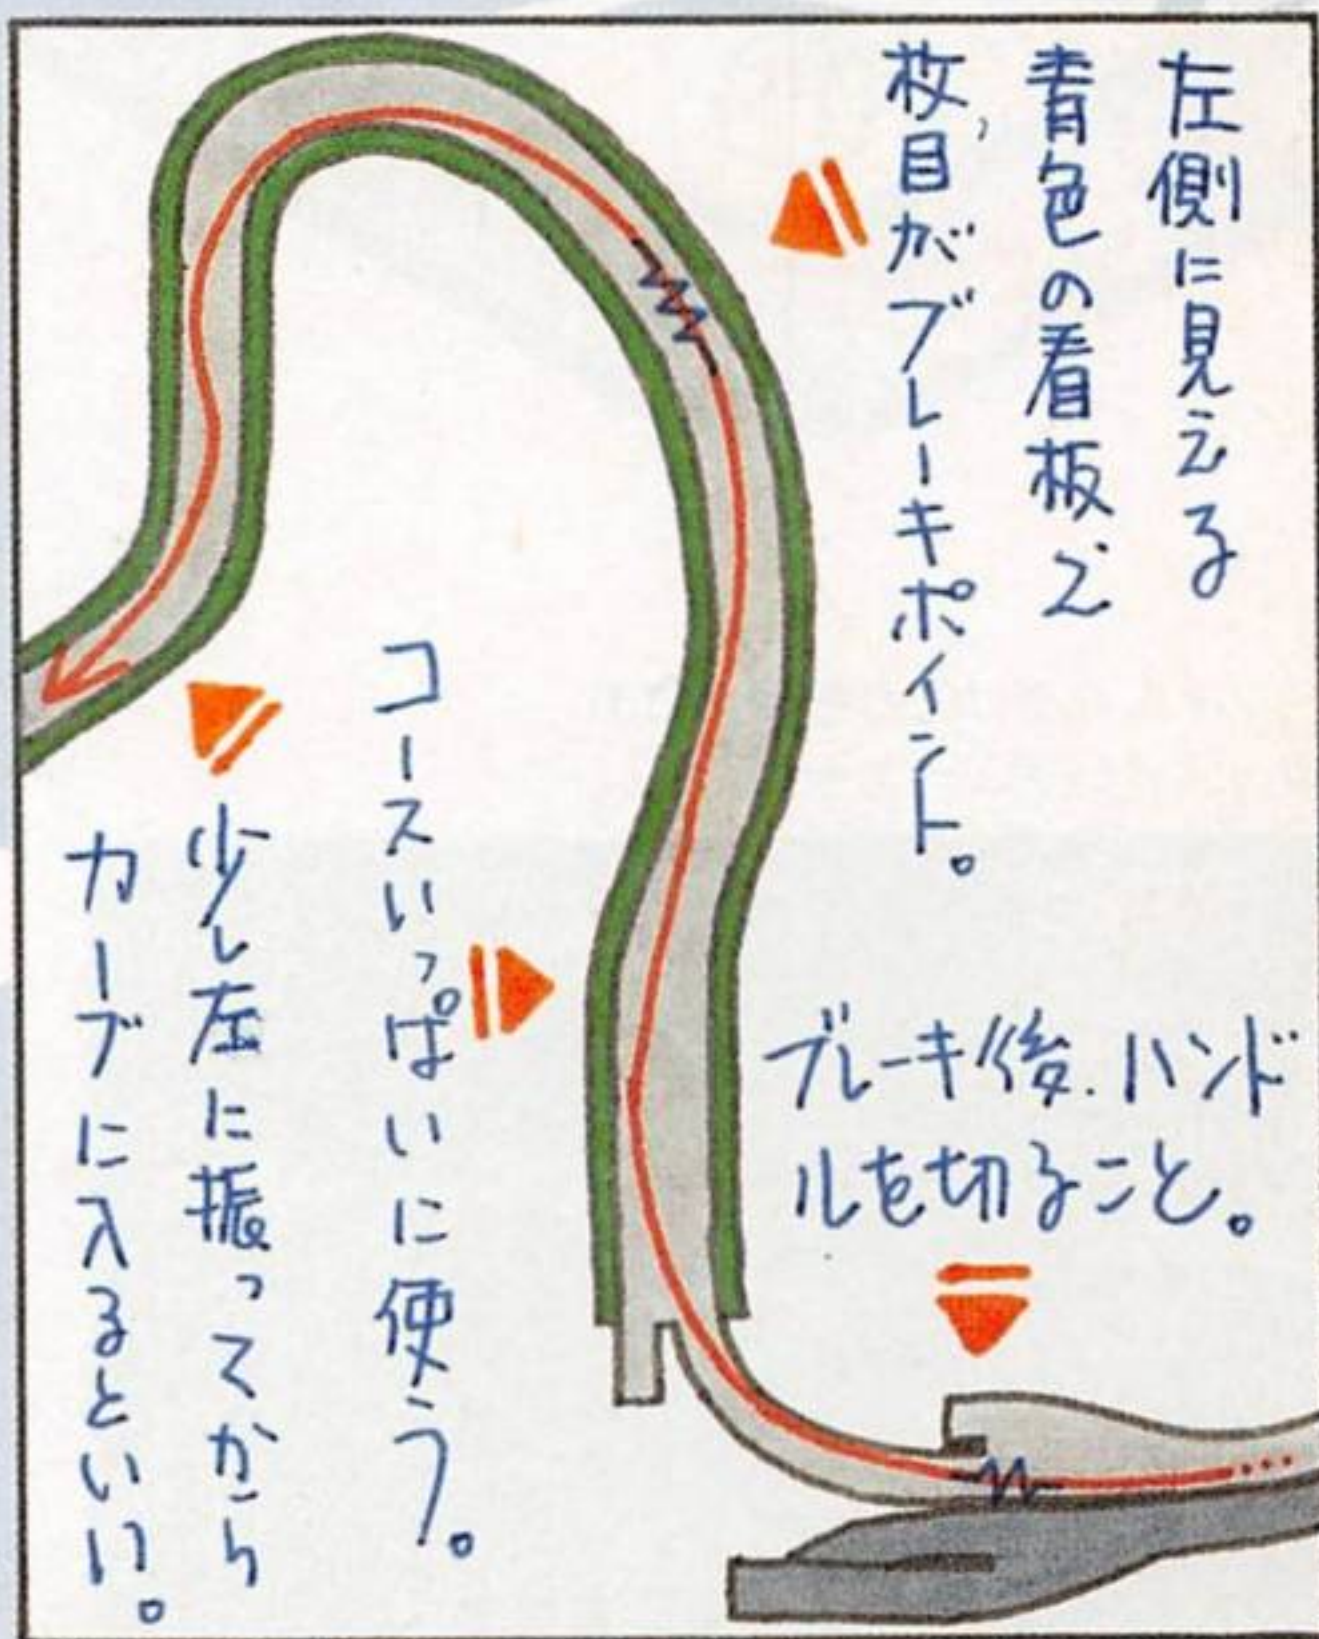 左側に見える
青色の看板2
枚目がブレーキポイント。
ブレーキ後、ハンド
ルを切ること。
コースいっぱいに使う。
少し左に振ってから
カーブに入るといい。